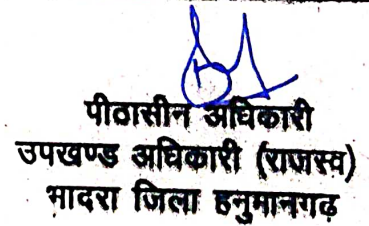 पीठासीन अधिकारी
उपखण्ड अधिकारी (राजस्व)
भादरा जिला हनुमानगढ़